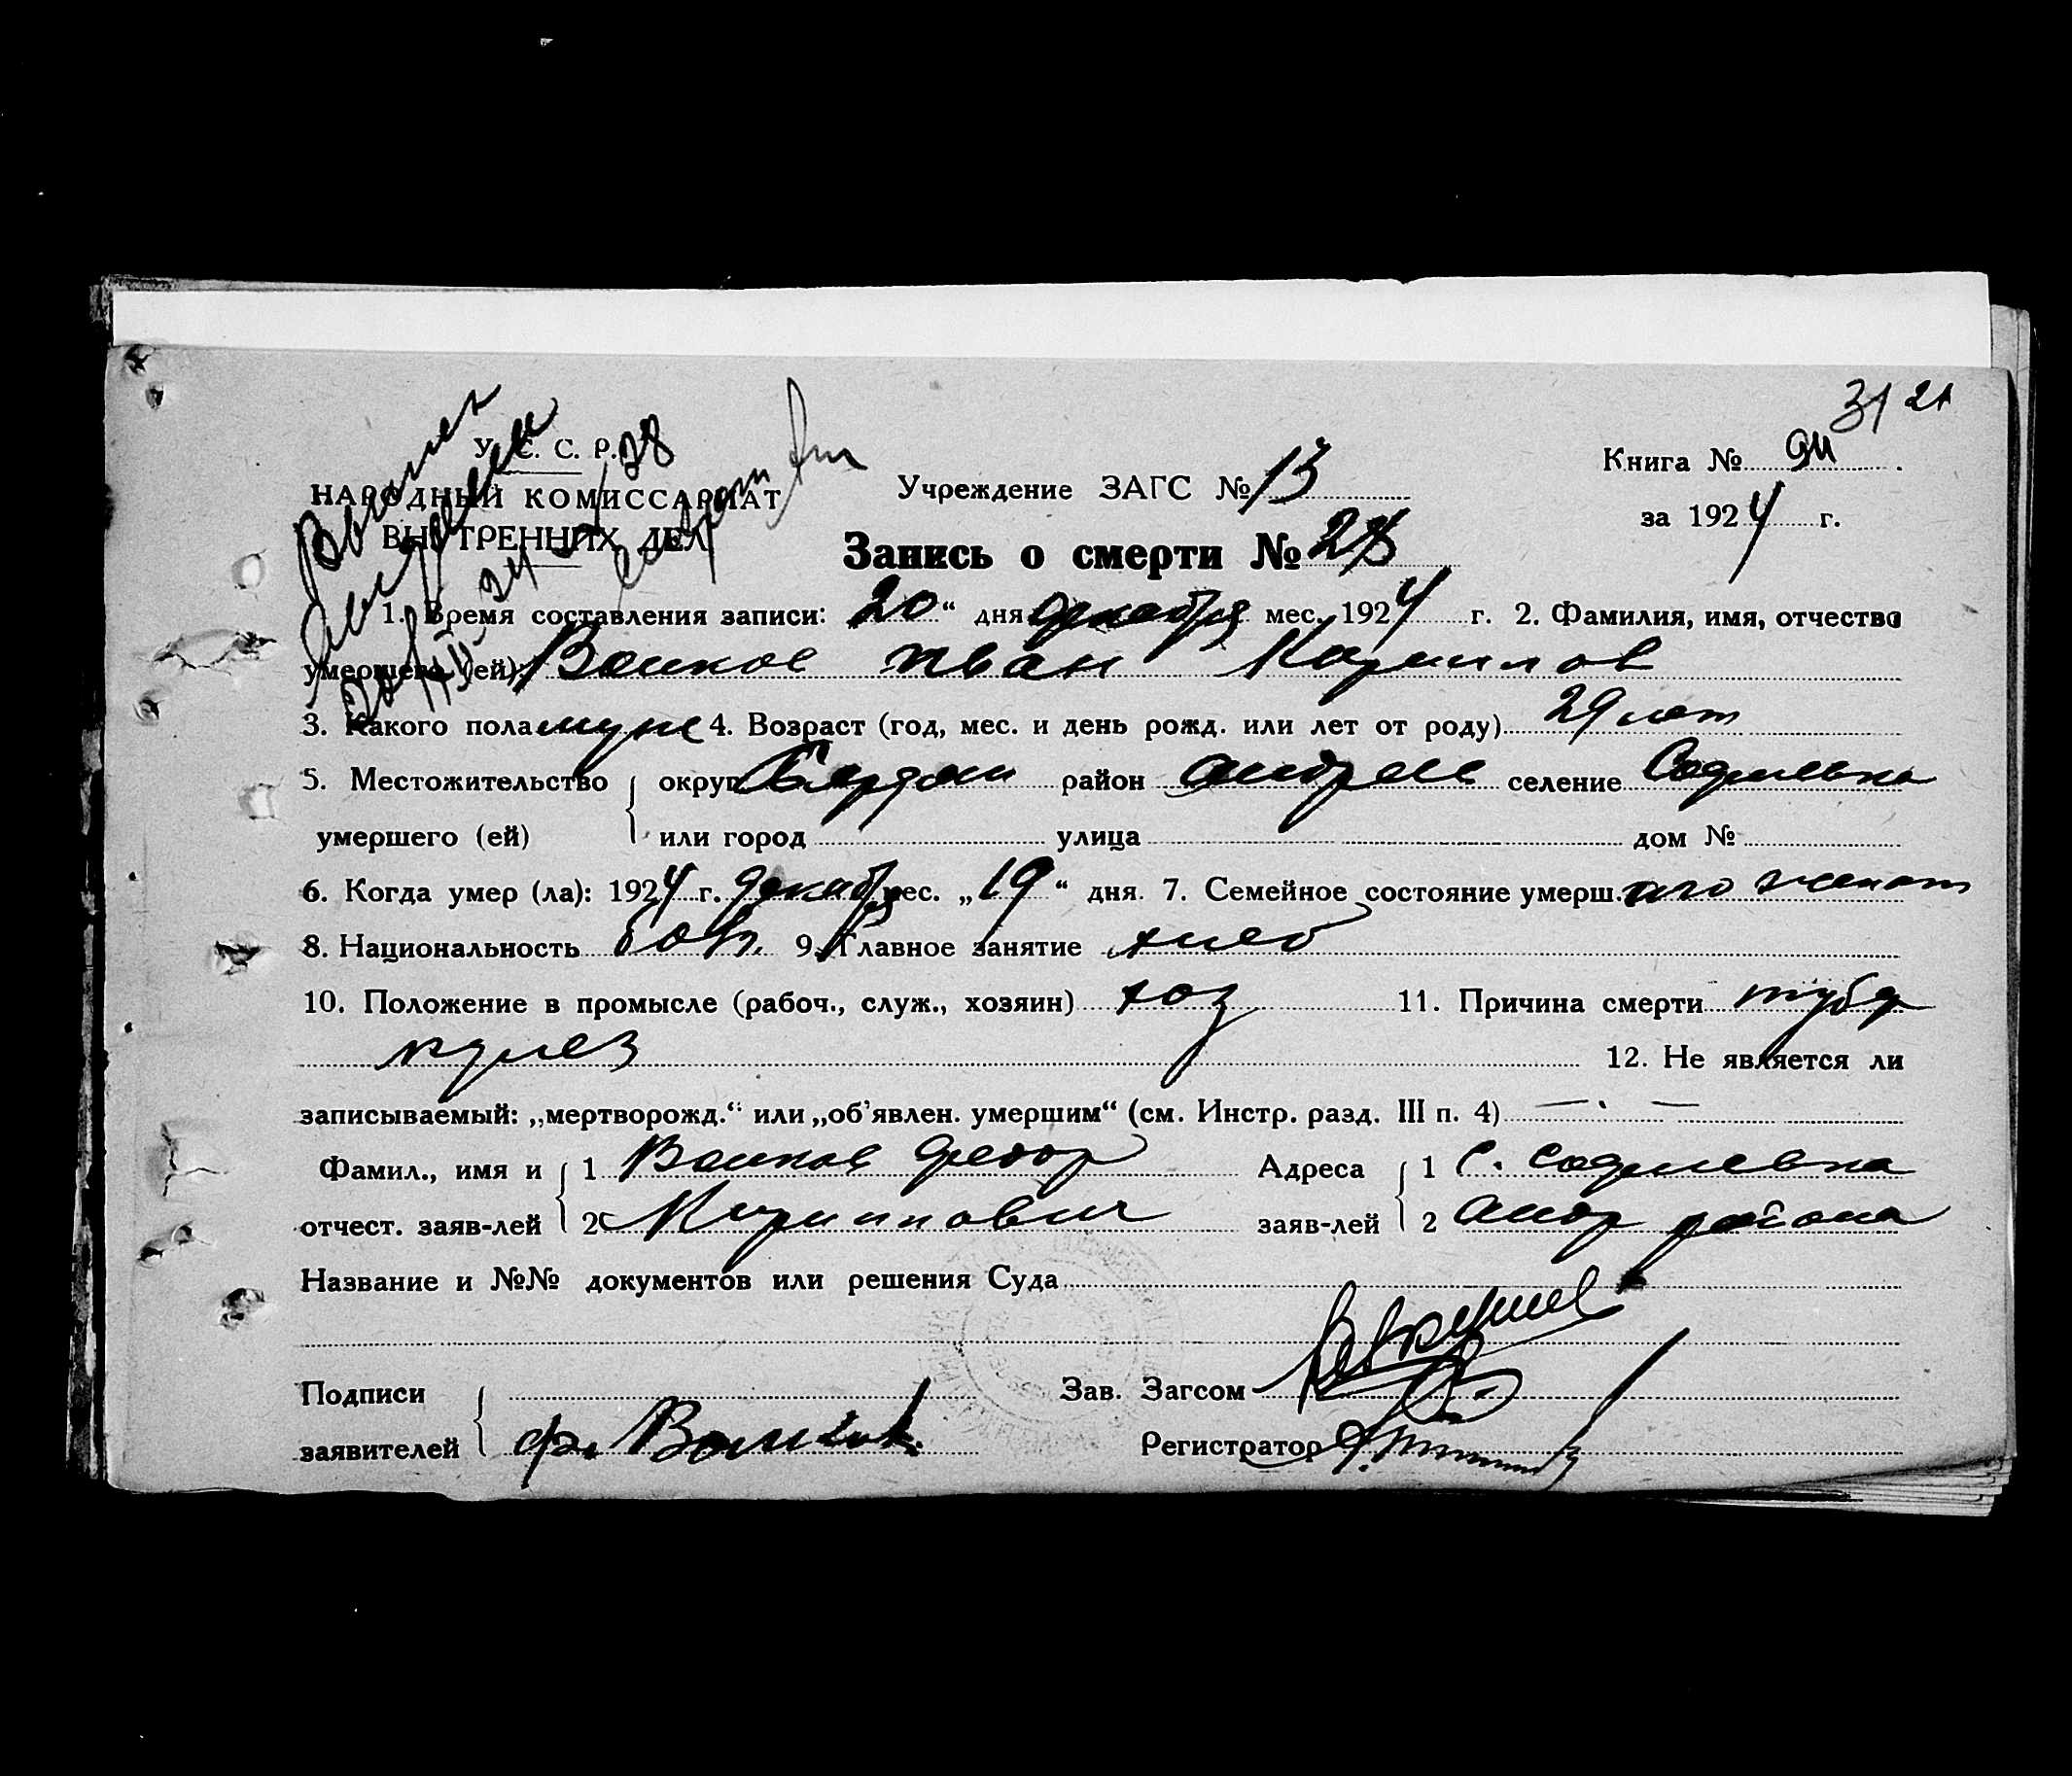 31 21
У. С. С. Р.
НАРОДНЫЙ КОМИССАРИАТ
ВНУТРЕННИХ ДЕЛ
Учреждение ЗАГС № 13
Книга №
за 1924 г.
Запись о смерти №
1. Время составления записи: 20 “ дня декабря мес. 1924 г. 2. Фамилия, имя, отчество
умершего (ей): Волков Иван Кирилов
3. Какого пола муж 4. Возраст (год, мес. и день рожд. или лет от роду) 29 лет
5. Местожительство округ Бердян район Андрее селение Софиевка
умершего (ей) или город улица дом №
6. Когда умер (ла): 1924 г. декабря мес. „ 19 “ дня. 7. Семейное состояние умерш. женат
8. Национальность болг. 9. Главное занятие хлеб
10. Положение в промысле (рабоч., служ., хозяин) хоз 11. Причина смерти тубер
кулез 12. Не является ли
записываемый: „мертворожд.“ или „об’явлен. умершим“ (см. Инстр. разд. III п. 4) — . —
Фамил., имя и 1 Волков Федор Адреса 1 С. Софиевка
отчест. заяв-лей 2 Кириллович заяв-лей 2 Андр района
Название и №№ документов или решения Суда
Подписи Зав. Загсом
заявителей Ф. Волков Регистратор